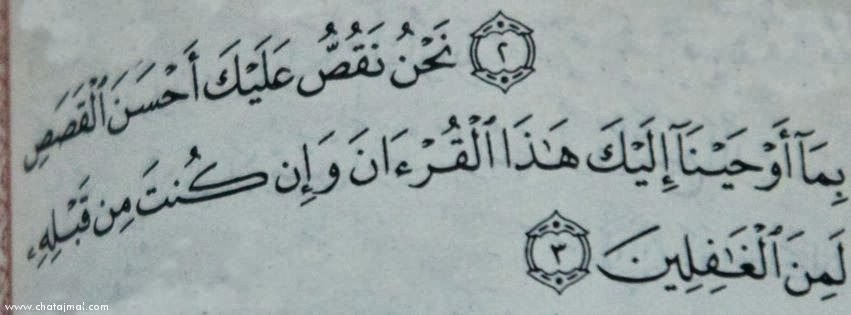 ٢ نَحْنُ نَقُصُّ عَلَيْكَ أَحْسَنَ ٱلْقَصَصِ
بِمَآ أَوْحَيْنَآ إِلَيْكَ هَٰذَا ٱلْقُرْءَانَ وَإِن كُنتَ مِن قَبْلِهِۦ
لَمِنَ ٱلْغَٰفِلِينَ ٣
www.chatajmal.com